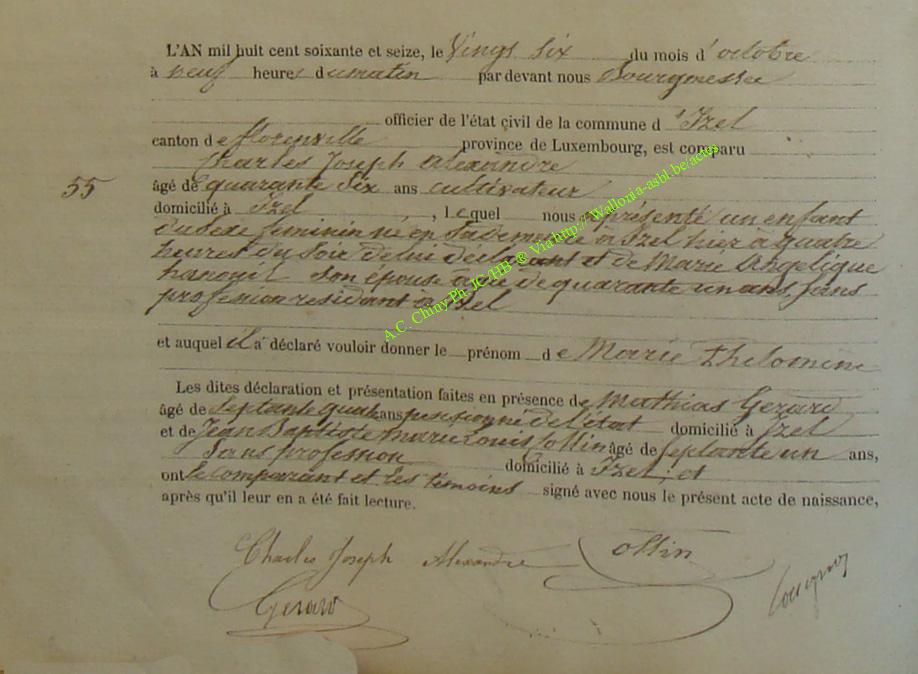 L'AN mil huit cent soixante et seize, le Vingt Six du mois d'octobre
à neuf heures du matin par devant nous Bourgmestre
officier de l'état çivil de la commune d'Izel
canton de florenville province de Luxembourg, est comparu
Charles Joseph alexandre
55
âgé de quarante Six ans cultivateur
domicilié à Izel, lequel nous a présenté un enfant
du Sexe feminin né en Sa demeure à Izel hier à quatre
heures du Soir de lui declarant et de Marie Angelique
hanouil Son épouse agée de quarante un ans, Sans
profession residant à Izel
et auquel il a déclaré vouloir donner le prénom de Marie Philomine
Les dites déclaration et présentation faites en présence de Mathias Gerard
âgé de Septante quatre ans pensionné de l'état domicilié à Izel
et de Jean Baptiste marie Louis Collin âgé de Septante un ans,
Sans profession domicilié à Izel, et
ont le comparant et les témoins signé avec nous le présent acte de naissance,
après qu'il leur en a été fait lecture.
Charles Joseph Alexandre Collin
Gerard
A.C. Chiny Ph JC/HB ® Via http://Wallonia-asbl.be/actes